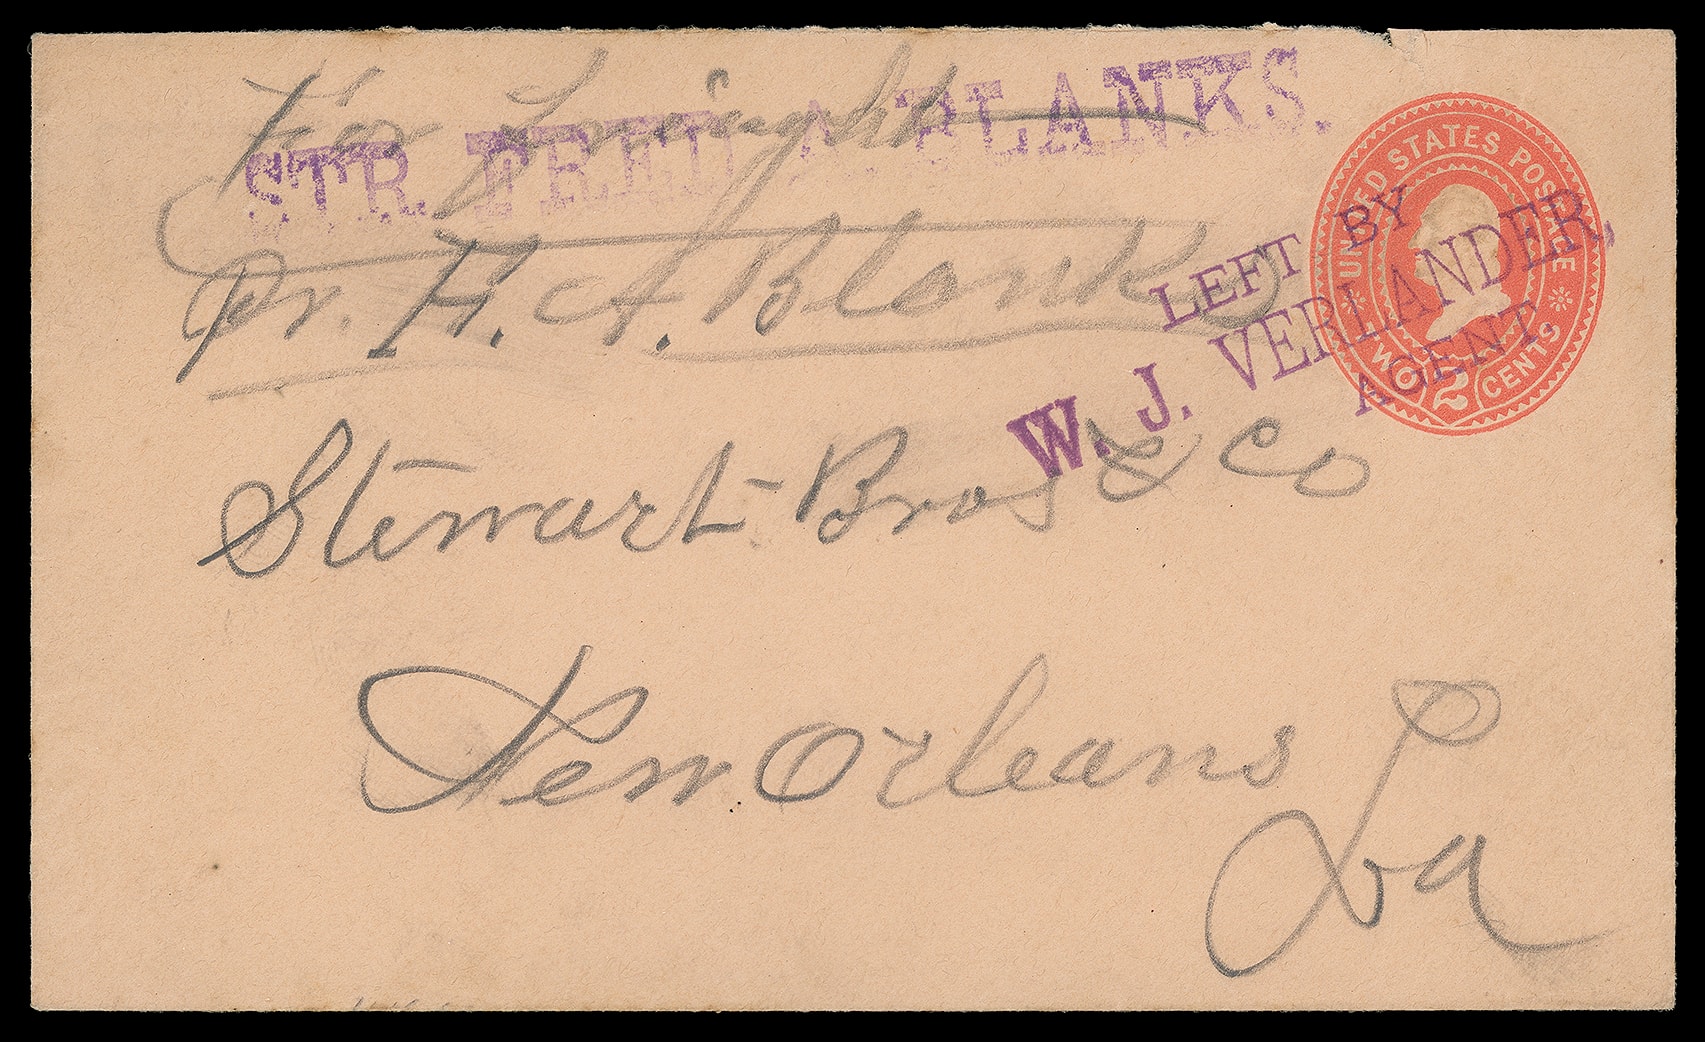 For Freight
STR. FRED A. BLANKS.
pr. F. A. Blanks
LEFT BY
W. J. VERLANDER,
AGENT
UNITED STATES POSTAGE
TWO 2 CENTS
Stewart Bros & Co
New Orleans
La